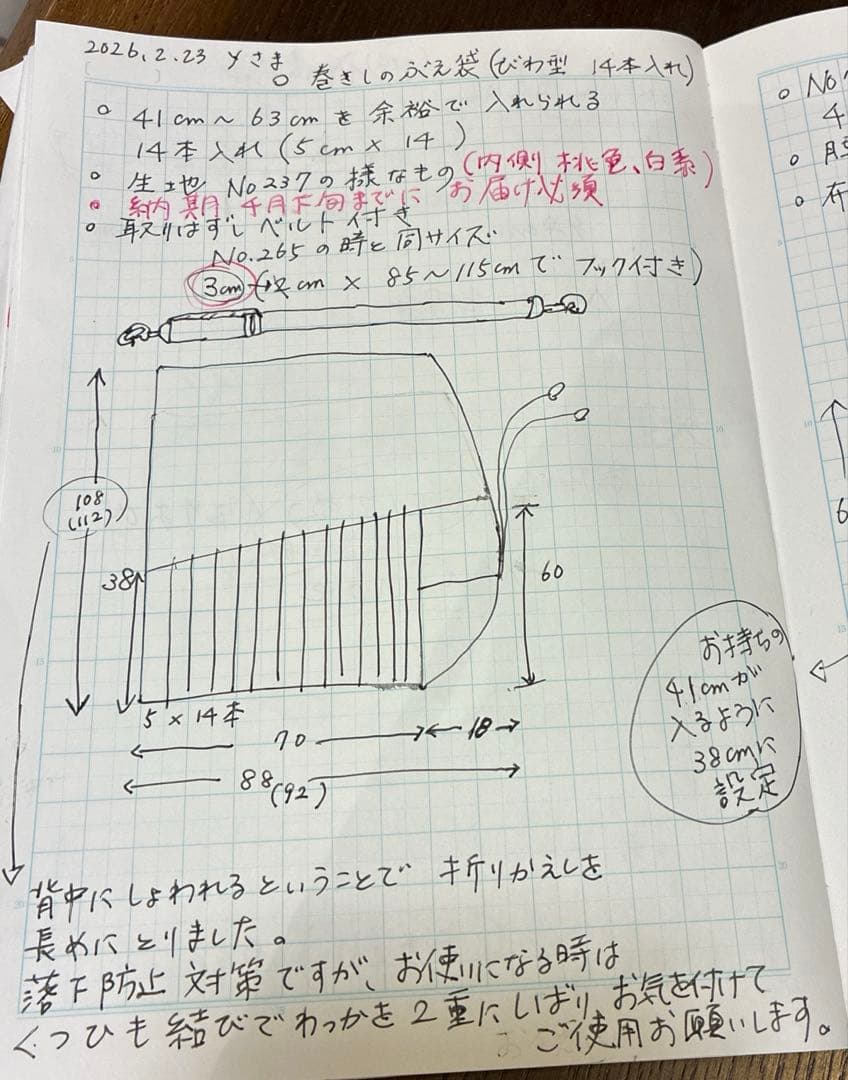 2026.2.23 Yさま
○ 巻きしのぶえ袋(びわ型 14本入れ)
○ 41cm～63cmを余裕で入れられる
14本入れ(5cm×14)
○ 生地 No237の様なもの(内側 桃色、白系)
○ 納期 月下旬までに お届け必須
○ 取りはずしベルト付き
No.265の時と同サイズ
3cm cm × 85～115cmで フック付き)
108
(112)
38
60
5×14本
70
18
88(92)
お持ちの
41cmが
入るように
38cmに
設定
背中にしょわれるということで 折りかえしを
長めにとりました。
落下防止対策ですが、お使いになる時は
くつひも結びでわっかを2重にしばり、お気を付けて
ご使用お願いします。
○ No
4
○
○ 布
6